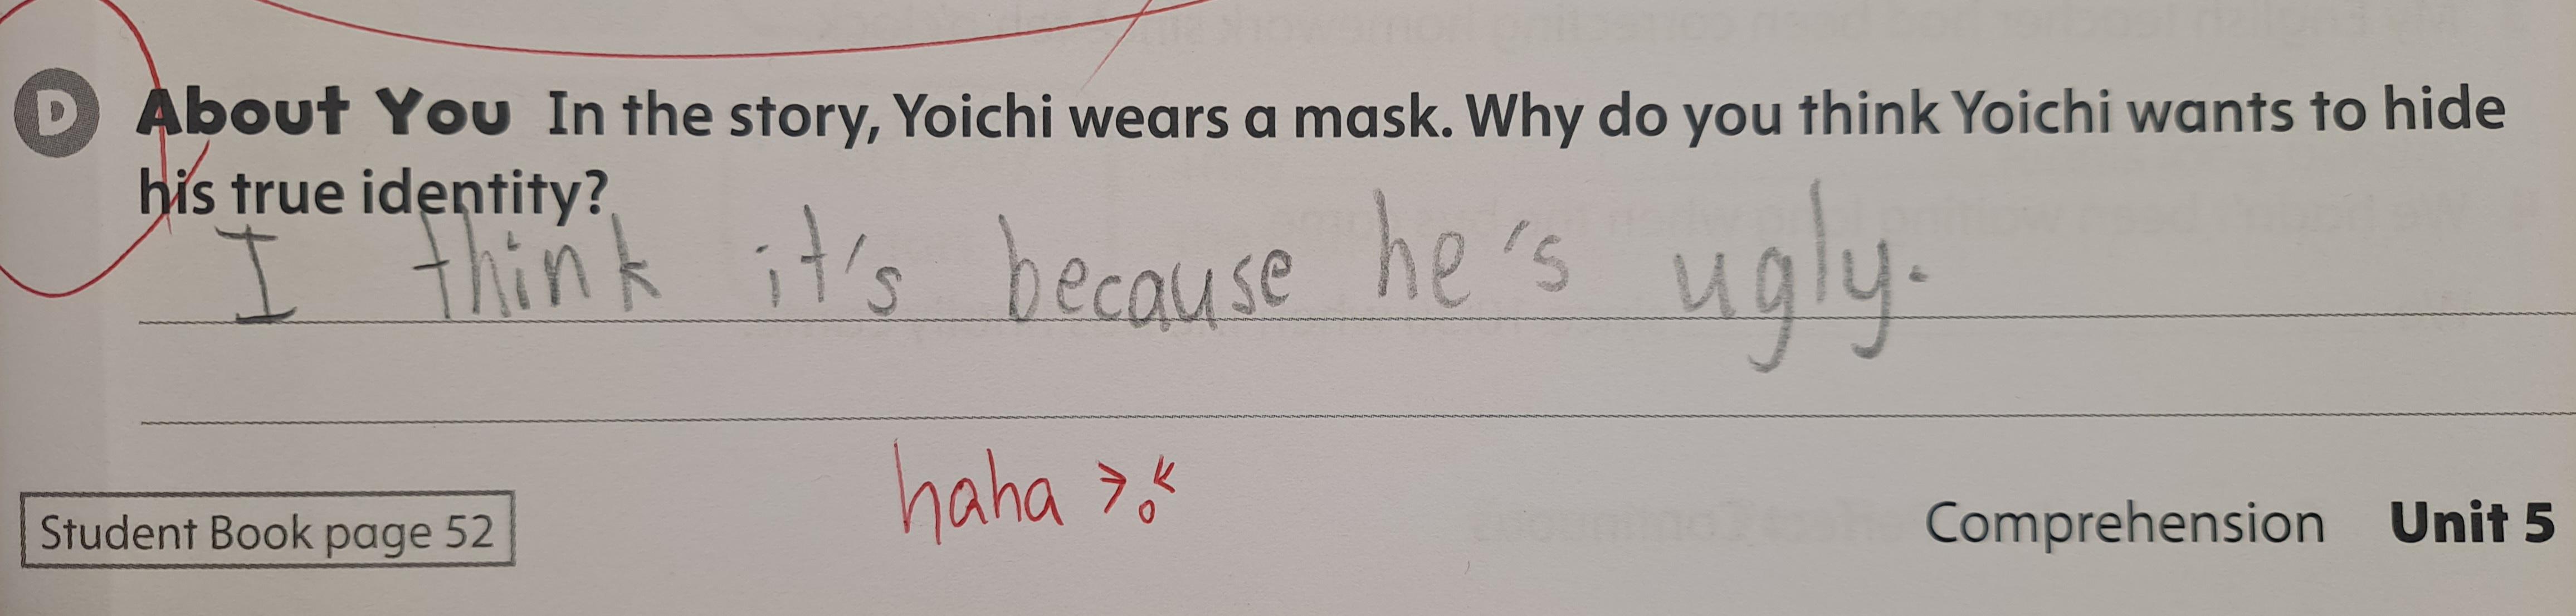 D About You In the story, Yoichi wears a mask. Why do you think Yoichi wants to hide
his true identity?
I think it's because he's ugly.
haha >o<
Student Book page 52 Comprehension Unit 5